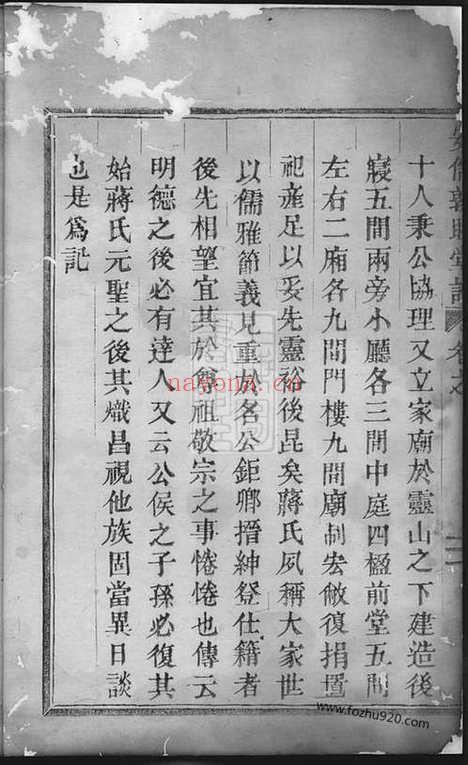 十人秉公協理又立家廟於靈山之下建造後
寢五間兩旁小廳各三間中庭四楹前堂五間
左右二廂各九間門樓九間廟制宏敞復捐置
祀產足以妥先靈裕後昆矣蔣氏夙稱大家世
以儒雅節義見重於名公鉅卿搢紳登仕籍者
後先相望宜其於尊祖敬宗之事惓惓也傳云
明德之後必有達人又云公侯之子孫必復其
始蔣氏元聖之後其熾昌視他族固當異日談
也是爲記
nayona.cn
www.fozhu920.com